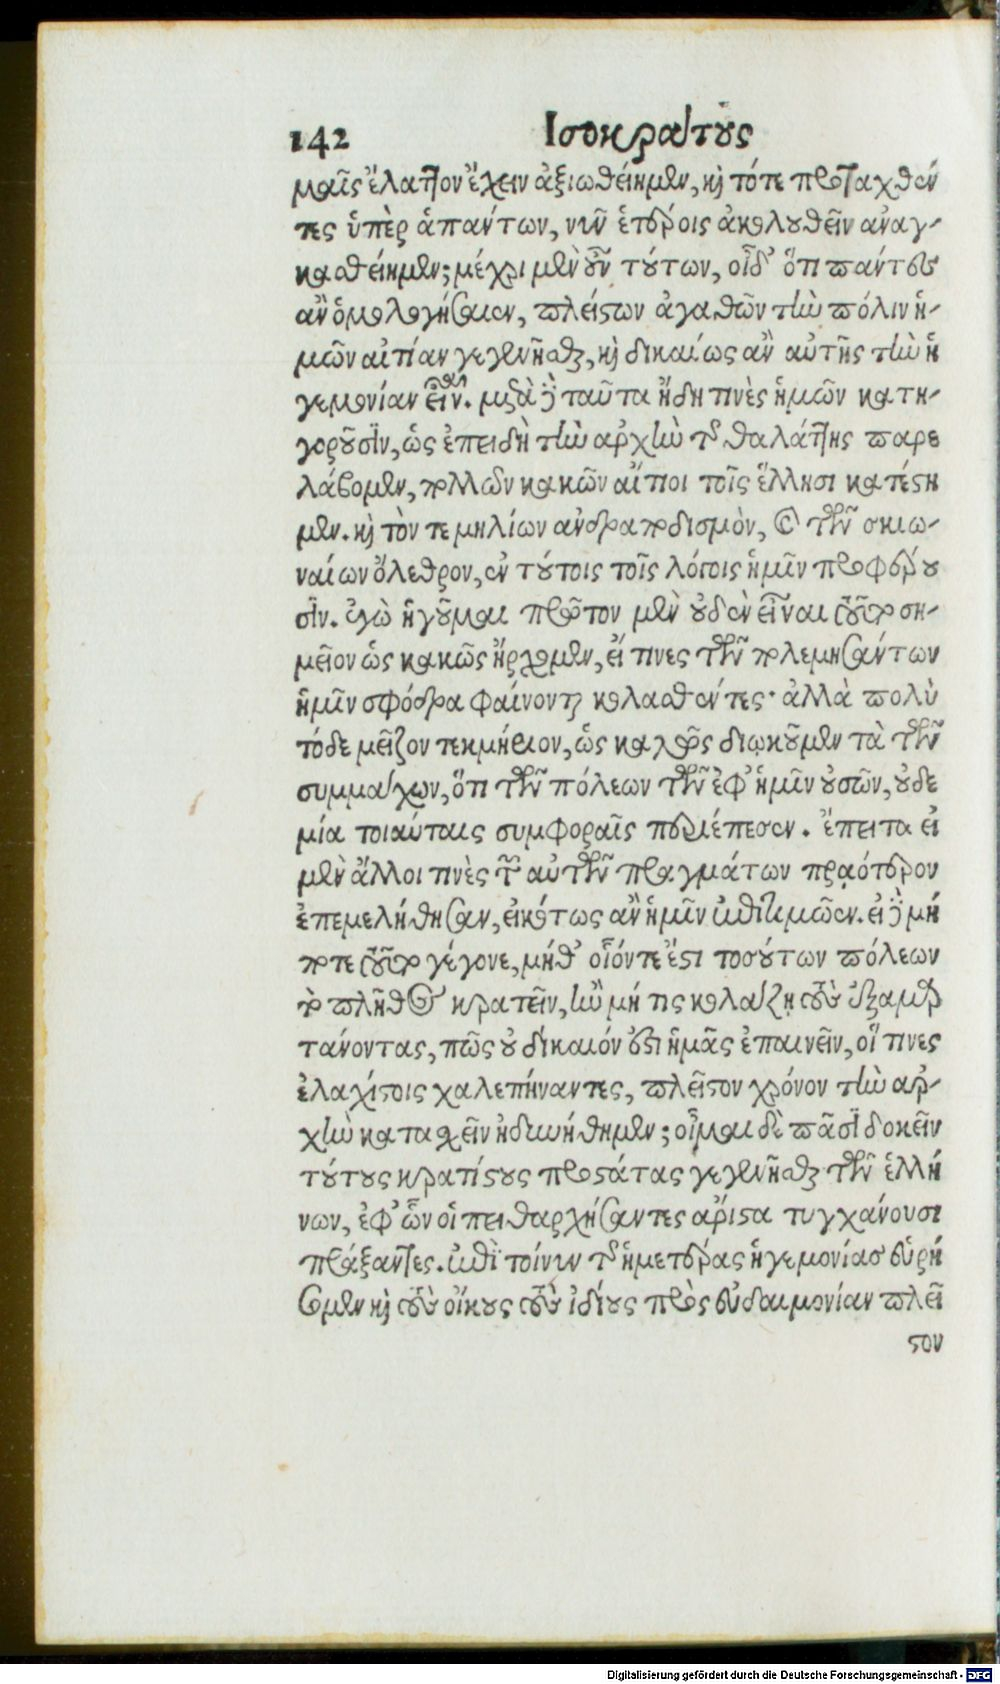 142 Ισοκράτους
μαῖς ἔλαττον ἔχειν ἀξιωθείημεν, καὶ τότε προταχθέν
τες ὑπὲρ ἁπάντων, νῦν ἑτέροις ἀκολουθεῖν ἀναγ-
κασθείημεν; μέχρι μὲν οὖν τούτων, οἶδ' ὅτι πάντες
ἂν ὁμολογήσαιεν, πλείστων ἀγαθῶν τὴν πόλιν ἡ-
μῶν αἰτίαν γεγενῆσθαι, καὶ δικαίως ἂν αὐτῆς τὴν ἡ
γεμονίαν εἶναι. μετὰ δὲ ταῦτα ἤδη τινὲς ἡμῶν κατη-
γοροῦσιν, ὡς ἐπειδὴ τὴν ἀρχὴν τῆς θαλάττης παρε
λάβομεν, πολλῶν κακῶν αἴτιοι τοῖς ἕλλησι κατέστη
μεν. καὶ τόν τε μηλίων ἀνδραποδισμὸν, καὶ τῶν σκιω-
ναίων ὄλεθρον, ἐν τούτοις τοῖς λόγοις ἡμῖν προφέρου
σιν. ἐγὼ ἡγοῦμαι πρῶτον μὲν οὐδὲν εἶναι τοῦτο ση-
μεῖον ὡς κακῶς ἤρχομεν, εἴ τινες τῶν πολεμησάντων
ἡμῖν σφόδρα φαίνονται κολασθέντες· ἀλλὰ πολὺ
τόδε μεῖζον τεκμήριον, ὡς καλῶς διῳκοῦμεν τὰ τῶν
συμμάχων, ὅτι τῶν πόλεων τῶν ἐφ' ἡμῖν οὐσῶν, οὐδε
μία τοιαύταις συμφοραῖς περιέπεσεν. ἔπειτα εἰ
μὲν ἄλλοι τινὲς τῶν αὐτῶν πραγμάτων πρᾳότερον
ἐπεμελήθησαν, εἰκότως ἂν ἡμῖν ἐπιτιμῶεν. εἰ δὲ μή
ποτε τοῦτο γέγονε, μήθ' οἷόντε ἔστι τοσούτων πόλεων
τὸ πλῆθος κρατεῖν, ἢν μή τις κολάζῃ τοὺς ἐξαμαρ
τάνοντας, πῶς οὐ δίκαιόν ἐστι ἡμᾶς ἐπαινεῖν, οἵ τινες
ἐλαχίστοις χαλεπήναντες, πλεῖστον χρόνον τὴν ἀρ-
χὴν κατασχεῖν ἠδυνήθημεν; οἶμαι δὲ πᾶσι δοκεῖν
τούτους κρατίστους προστάτας γεγενῆσθαι τῶν ἑλλή
νων, ἐφ' ὧν οἱ πειθαρχήσαντες ἄριστα τυγχάνουσι
πράξαντες. ἐπὶ τοίνυν τῆς ἡμετέρας ἡγεμονίας εὑρή
σομεν καὶ τοὺς οἴκους τοὺς ἰδίους πρὸς εὐδαιμονίαν πλεῖ
στον
Digitalisierung gefördert durch die Deutsche Forschungsgemeinschaft - DFG